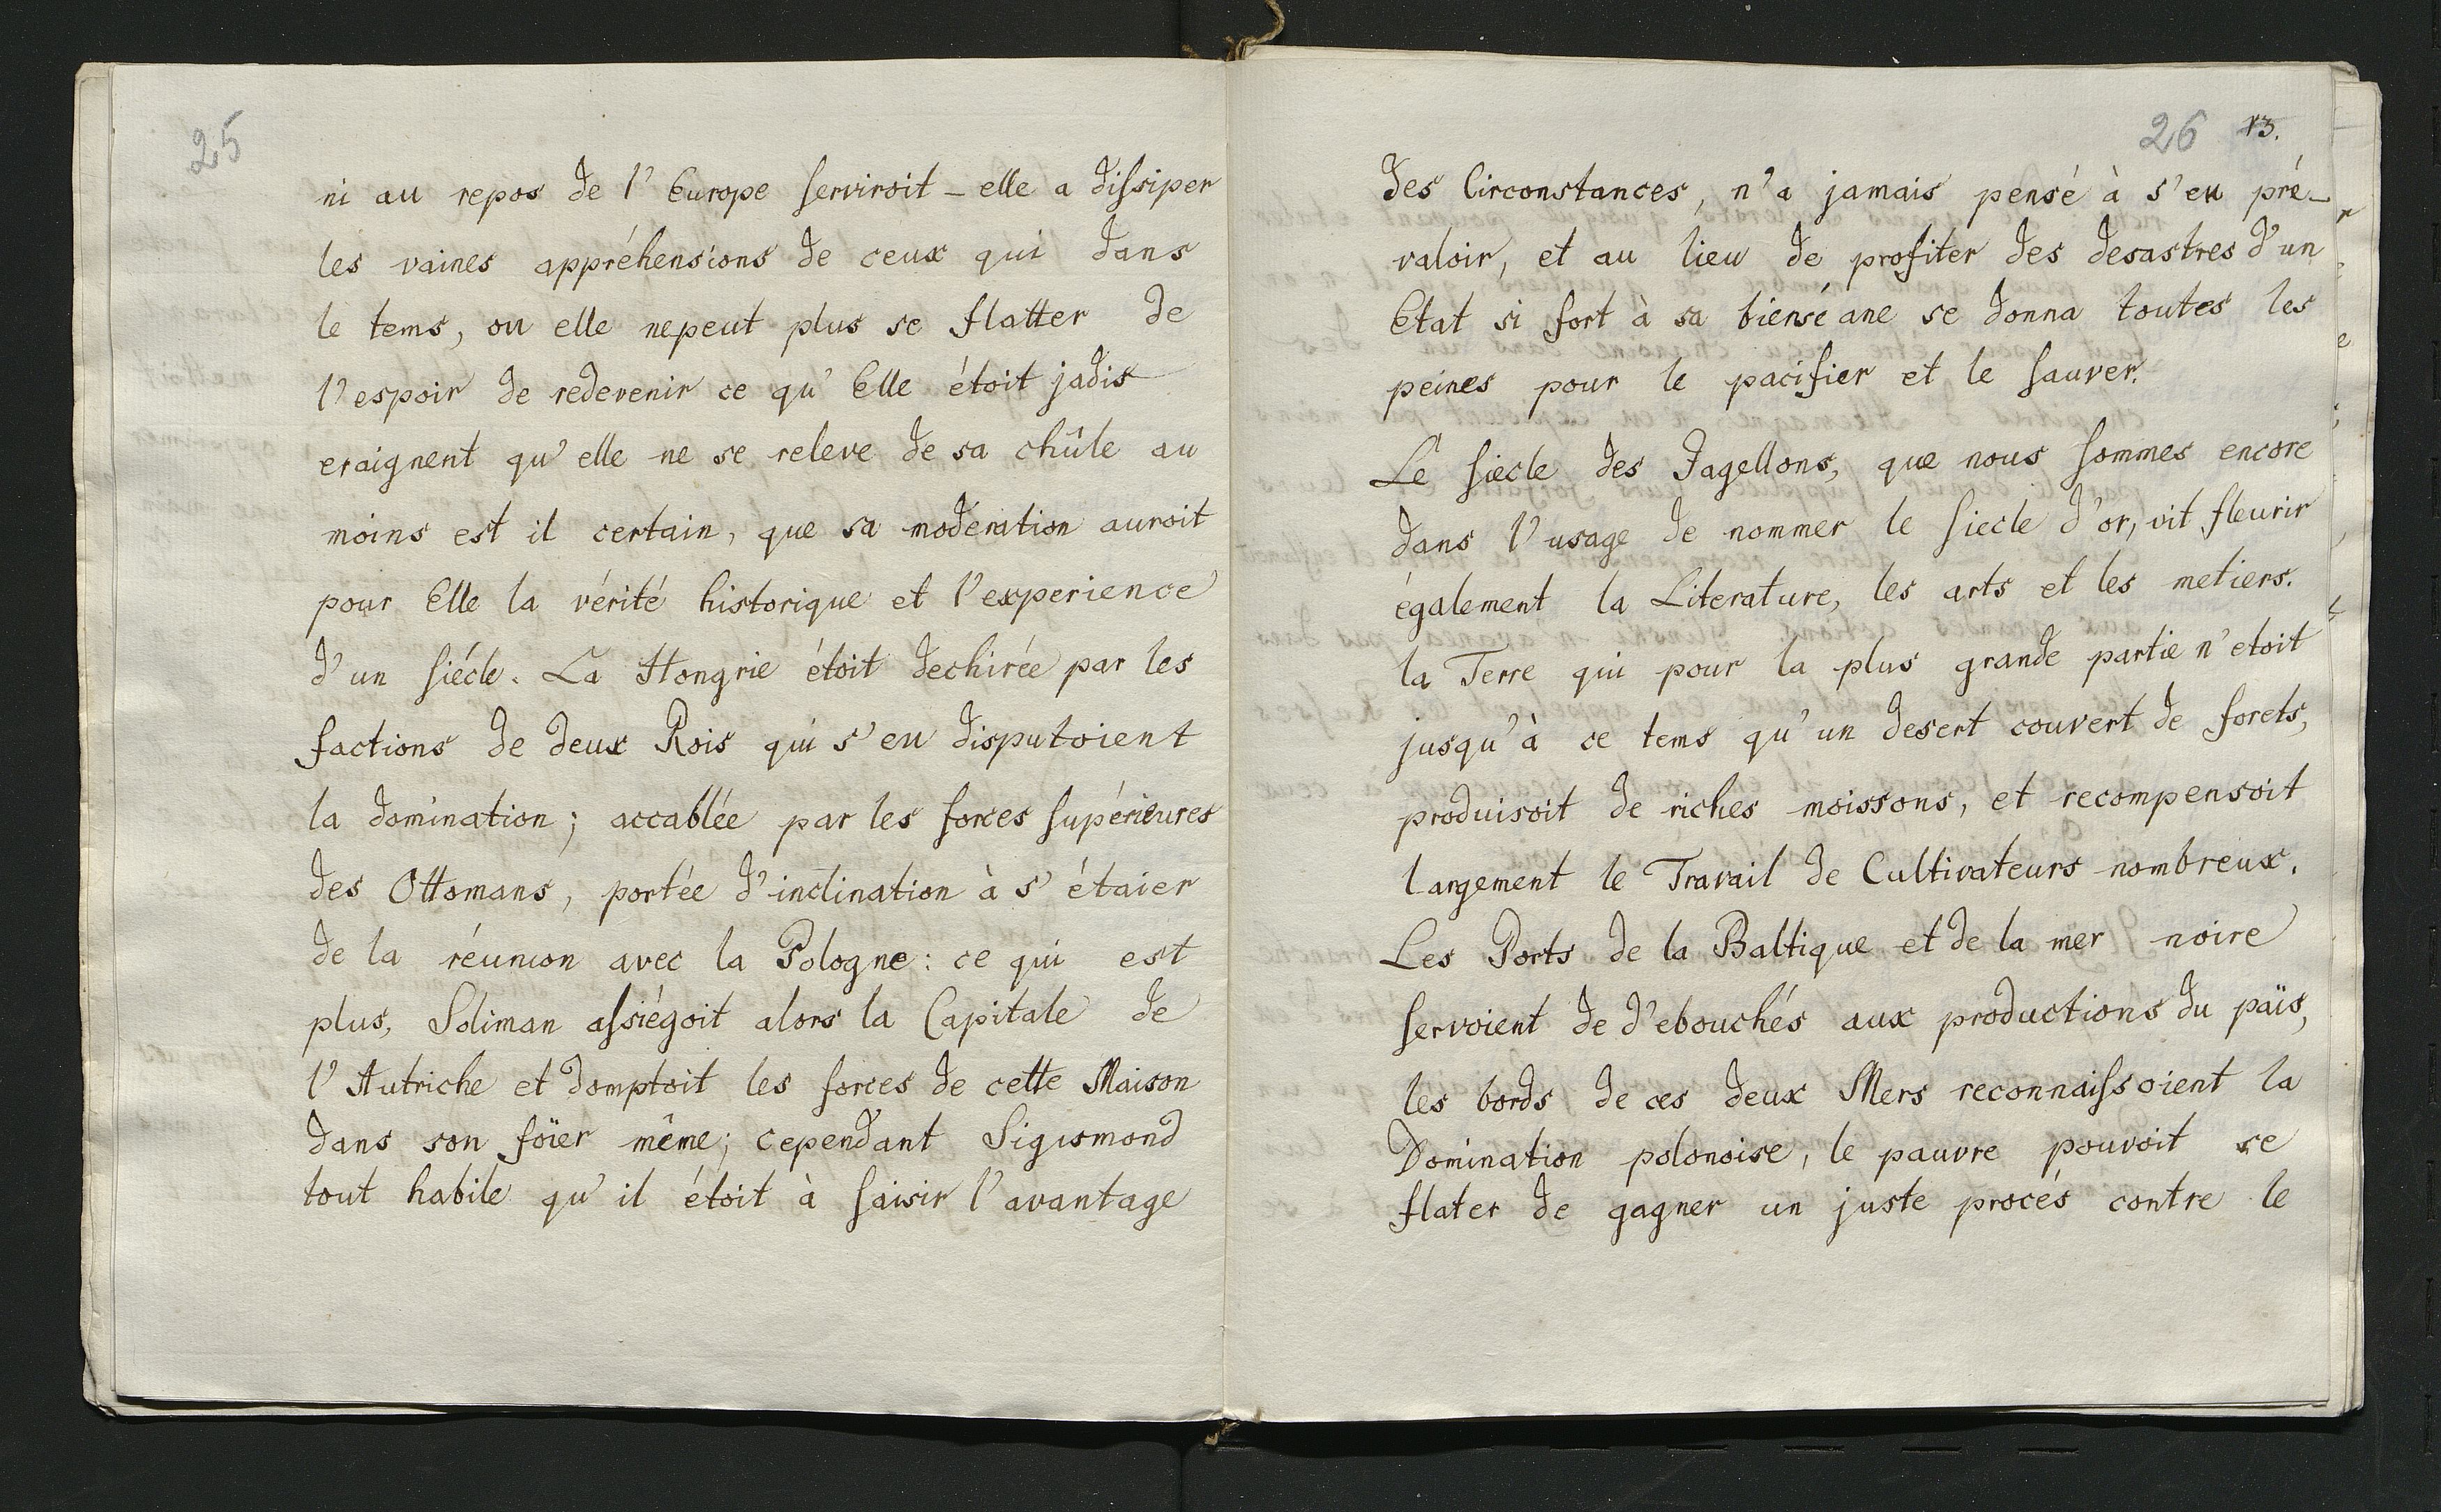 25
ni au repos de l' Europe serviroit - elle a dissiper
les vaines appréhensions de ceux qui dans
le tems, ou elle nepeut plus se flatter de
l'espoir de redevenir ce qu' Elle étoit jadis
eraignent qu'elle ne se releve de sa chûle au
moins est il certain, que sa moderation auroit
pour Elle la vérité historique et l'experience
d'un siécle. La Hongrie étoit dechirée par les
factions de deux Rois qui s'en disputoient
la domination; accablée par les forces supérieures
des Ottomans, portée d'inclination à s'étaier
de la réunion avec la Pologne: ce qui est
plus, Soliman assiégoit alors la Capitale de
l'Autriche et domptoit les forces de cette Maison
dans son föier même; cependant Sigismond
tout habile qu'il étoit à saisir l'avantage
26 13.
des Circonstances, n'a jamais pensé à s'en pré-
valoir, et au lieu de profiter des desastres d'un
Etat si fort à sa bienséane se donna toutes les
peines pour le pacifier et le sauver.
Le siecle des Jagellons, que nous sommes encore
dans l'usage de nommer le siecle d'or, vit fleurir
également la Literature, les arts et les metiers.
la Terre qui pour la plus grande partie n'etoit
jusqu'à ce tems qu'un desert couvert de forets,
produisoit de riches moissons, et recompensoit
largement le Travail de Cultivateurs nombreux.
Les Ports de la Baltique et de la mer noire
servoient de d'ebouchés aux productions du païs,
les bords de ces deux Mers reconnaissoient la
Domination polonoise, le pauvre pouvoit se
flater de gagner un juste procés contre le